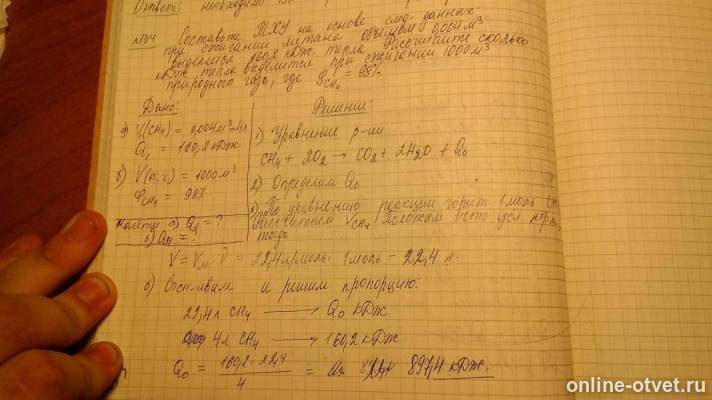 Ответ: необходимо
№34 Составьте ТХУ на основе след. данных:
при сжигании метана объёмом 0,004 м³
выделяется 160,2 кДж. тепла. Рассчитайте сколько
кДж тепла выделится при сжигании 1000 м³
природного газа, где φCH₄ = 98%
Дано:
а) V(CH₄) = 0,004 м³ = 4л
Q₁ = 160,2 кДж
б) V(п.г.) = 1000 м³
φCH₄ = 98%
Найти: а) Q₀ = ?
б) Qп = ?
Решение:
1) Уравнение р-ии
CH₄ + 2O₂ → CO₂ + 2H₂O + Q₀
2) Определим Q₀
По уравнению реакции горит 1 моль
Рассчитаем VCH₄ Положим что усл. норм,
тогда
V = Vм · ν = 22,4л/моль · 1моль = 22,4 л.
б) Составим и решим пропорцию:
22,4л CH₄ → Q₀ кДж
4л CH₄ → 160,2 кДж
Q₀ = 160,2 · 22,4 / 4 = 897,4 кДж.
online-otvet.ru